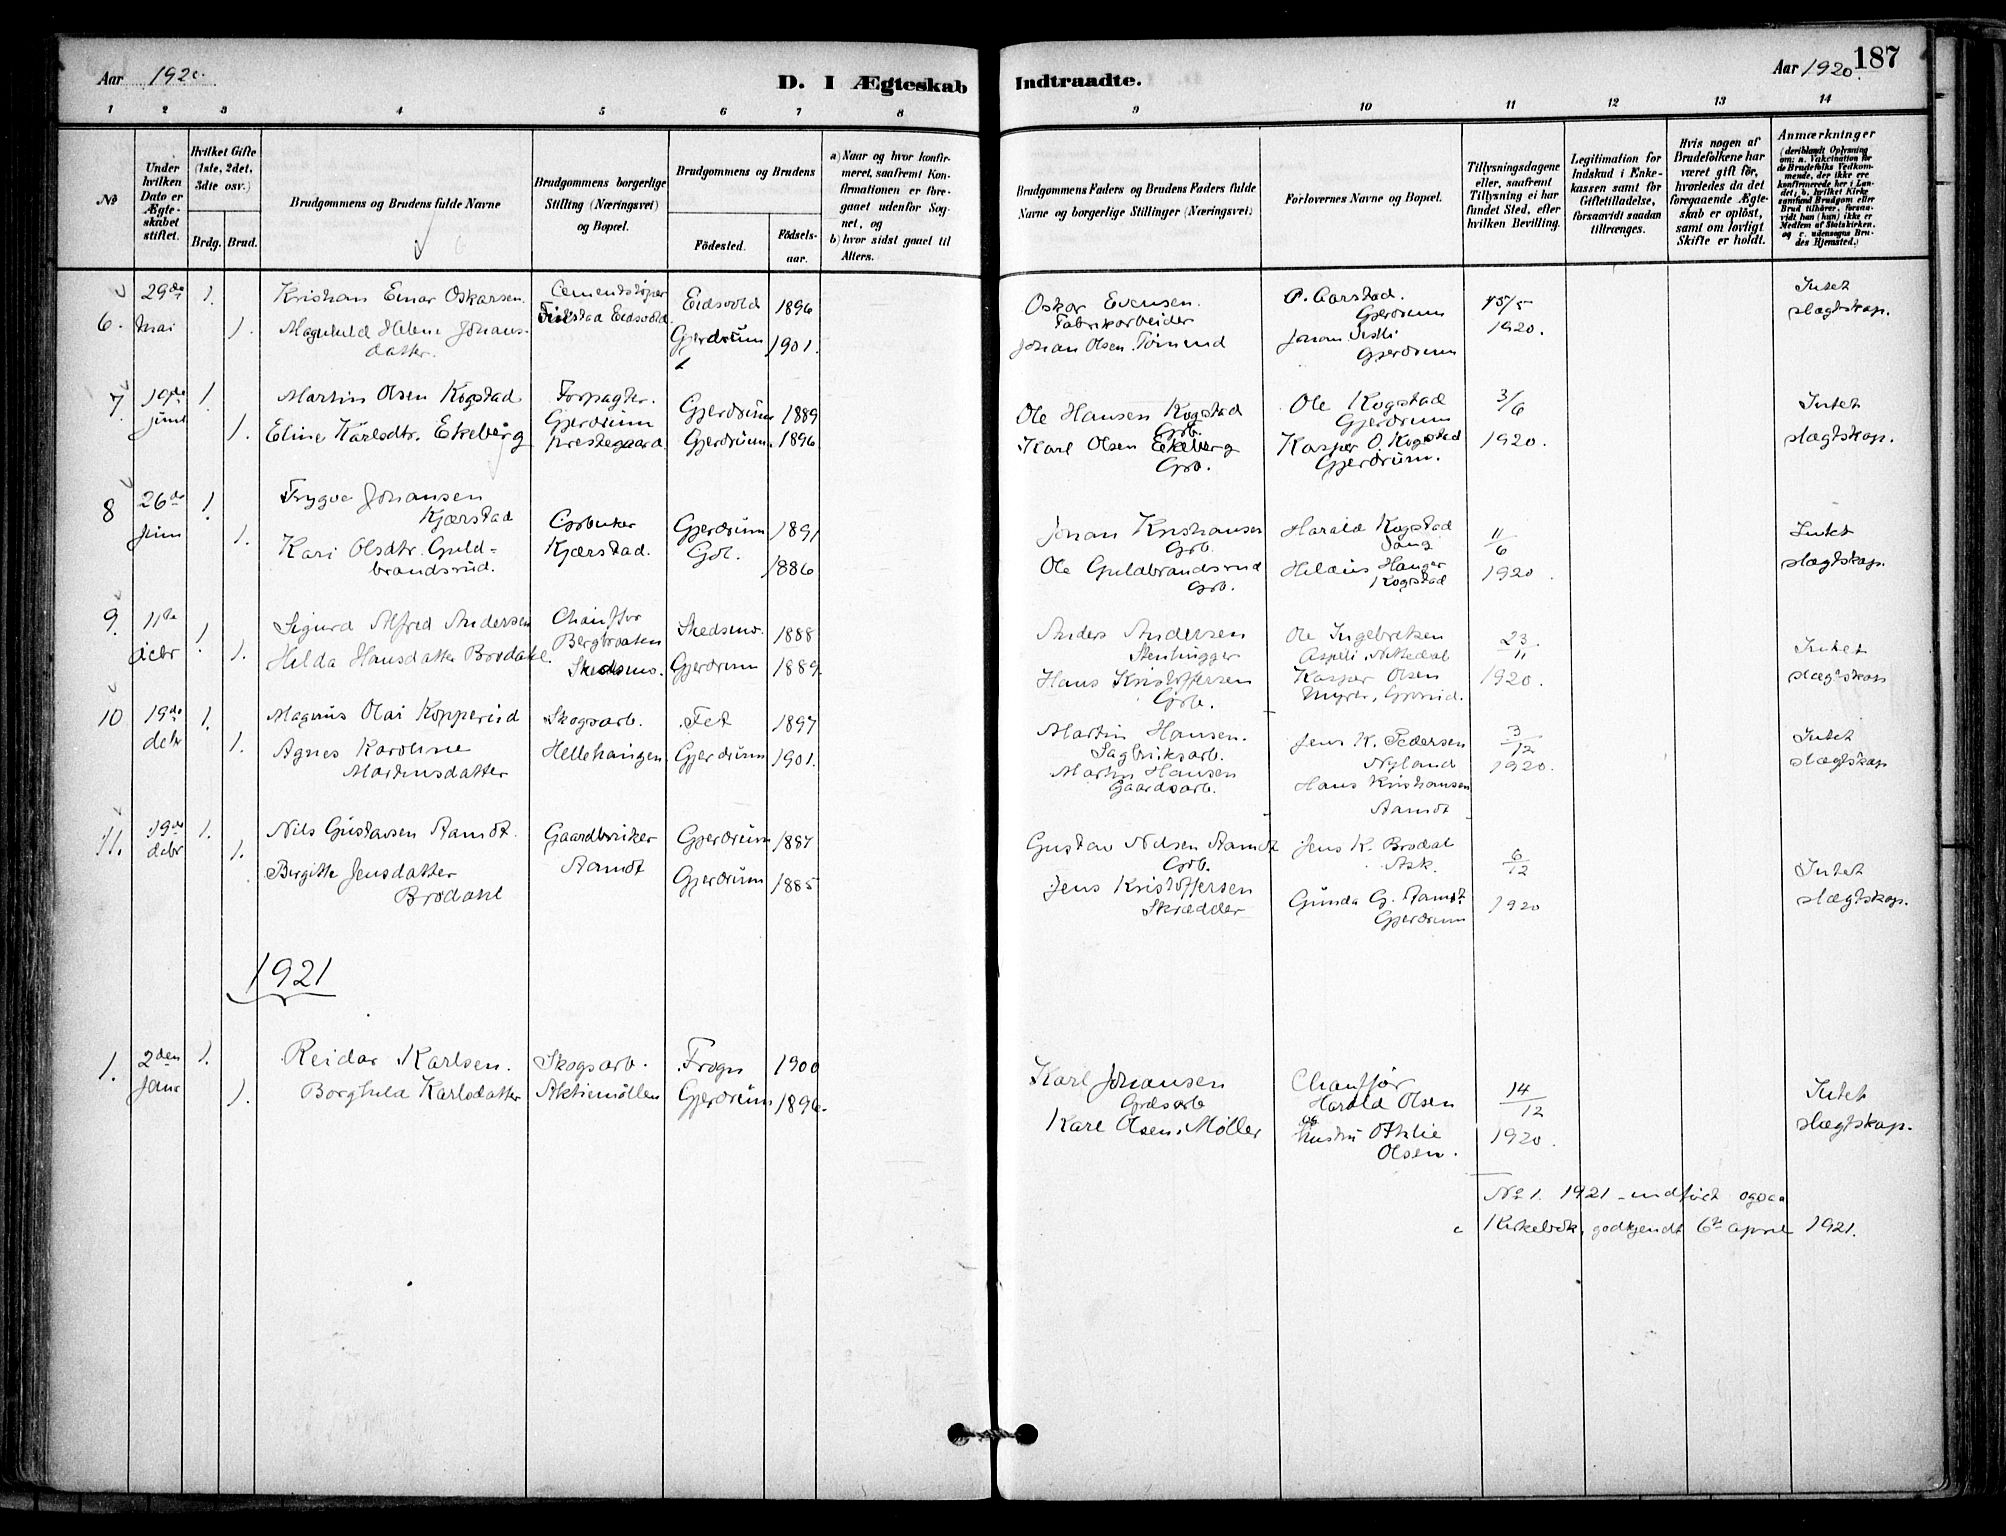 Aar 1920.
D. I Ægteskab Indtraadte.
Aar 1920.
187
1 2 3 4 5 6 7 8 9 10 11 12 13 14
No
Under hvilken Dato er Ægteskabet stiftet.
Hvilket Gifte (1ste, 2det, 3dte osv.)
Brdg. Brud.
Brudgommens og Brudens fulde Navne
Brudgommens borgerlige Stilling (Næringsvei) og Bopæl.
Brudgommens og Brudens
Födested.
Födselsaar.
a) Naar og hvor konfirmeret, saafremt Konfirmationen er foregaaet udenfor Sognet, og
b) hvor sidst gaaet til Alters.
Brudgommens Faders og Brudens Faders fulde Navne og borgerlige Stillinger (Næringsvei)
Forlovernes Navne og Bopæl.
Tillysningsdagene eller, saafremt Tillysning ei har fundet Sted, efter hvilken Bevilling.
Legitimation for Indskud i Enkekassen samt for Giftetilladelse, forsaavidt saadan tiltrænges.
Hvis nogen af Brudefolkene har været gift för, hvorledes da det foregaaende Ægteskab er oplöst, samt om lovligt Skifte er holdt.
Anmærkninger
(deriblandt Oplysning om: a. Vakcination for de Brudefolks Vedkommende, der ikke ere konfirmerede her i Landet, b. hvilket Kirkesamfund Brudgom eller Brud tilhörer, forsaavidt han (hun) ikke er Medlem af Statskirken, og c. udensogns Brudes Hjemsted.)
6. 29de mai 1. 1.
Kristian Einar Oskarsen.
Magnhild Helene Johansdatter.
Cementstøper
Eidsvold
Eidsvold 1896
Gjerdrum 1901.
Oskar Evensen.
Fabrikarbeider
Johan Olsen
P. Aarstad.
Gjerdrum
Johan
Gjerdrum
15/5
1920.
Intet
slægtskap.
7 19de juni 1. 1.
Martin Olsen Kogstad
Eline Karlsdtr. Ekeberg
Forpagter.
Gjerdrum
prestegaard.
Gjerdrum 1889
Gjerdrum. 1896.
Ole Hansen Kogstad
Grb.
Karl Olsen Ekeberg
Grb.
Ole Kogstad
Gjerdrum
Kasper O. Kogstad
Gjerdrum.
3/6
1920.
Intet
slægtskap.
8 26de juni 1. 1.
Trygve Johansen
Kjærstad
Kari Olsdtr. Guldbrandsrud.
Grbruker
Kjærstad.
Gjerdrum 1891
Gol. 1886
Johan Kristiansen
Grb.
Ole Guldbrandsrud
Grb.
Harald Kogstad
Hilda Hanger
Kogstad
11/6
1920.
Intet
slægtskap.
9. 11te decbr 1. 1.
Sigurd Alfred Andersen
Hilda Hansdatter Brodahl.
Chauffør
Bergbraaten
Skedsmo.
Skedsmo. 1888
Gjerdrum 1889.
Anders Andersen
Stenhugger
Hans Kristoffersen
Grb.
Ole Ingebretsen
Aspeli Nittedal
Kasper Olsen
Myrer,
23/11
1920.
Intet
slægtskap
10 19de decbr 1. 1.
Magnus Olai Kopperud
Agnes Karoline
Martinsdatter
Skogsarb.
Hellehaugen.
Fet 1897
Gjerdrum 1901.
Martin Hansen.
Sagbruksarb.
Martin Hansen
Gaardsarb.
Jens K. Pedersen
Nyland
Hans Kristiansen
Aamot
3/12
1920.
Intet
slægtskap
11. 19de decbr 1. 1.
Nils Gustavsen Aamot.
Birgitte Jensdatter
Brodahl
Gaardbruker
Aamot
Gjerdrum 1887
Gjerdrum 1885
Gustav Nilsen Aamot
Grb.
Jens Kristoffersen
Skrædder
Jens K. Brodal
Ask.
Gunda G. Aamot
Gjerdrum
6/12
1920
Intet
slægtskap.
1921
1. 2den Janr 1. 1.
Reidar Karlsen.
Borghild Karlsdatter
Skogsarb.
Aktiemøllen
Frogn 1900
Gjerdrum 1896.
Karl Johansen
Grdsarb
Karl Olsen Møller
Chauffør
Harald Olsen
og
Hustru Othlie
Olsen.
14/12
1920.
Intet
slægtskap.
No 1. 1921 indført ogsaa
i Kirkebok, godkjendt 6te april 1921.